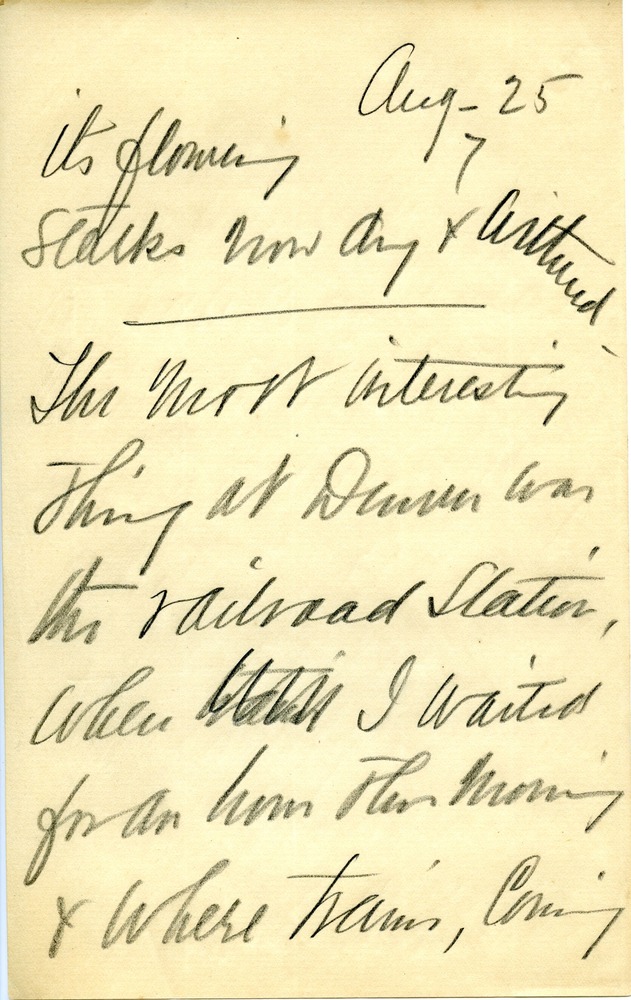 Aug - 25
7
its flowering
Stalks now dry & withered.
The most interesting
thing at Denver was
the railroad Station,
when I waited
for an hour this morning
& where trains, coming